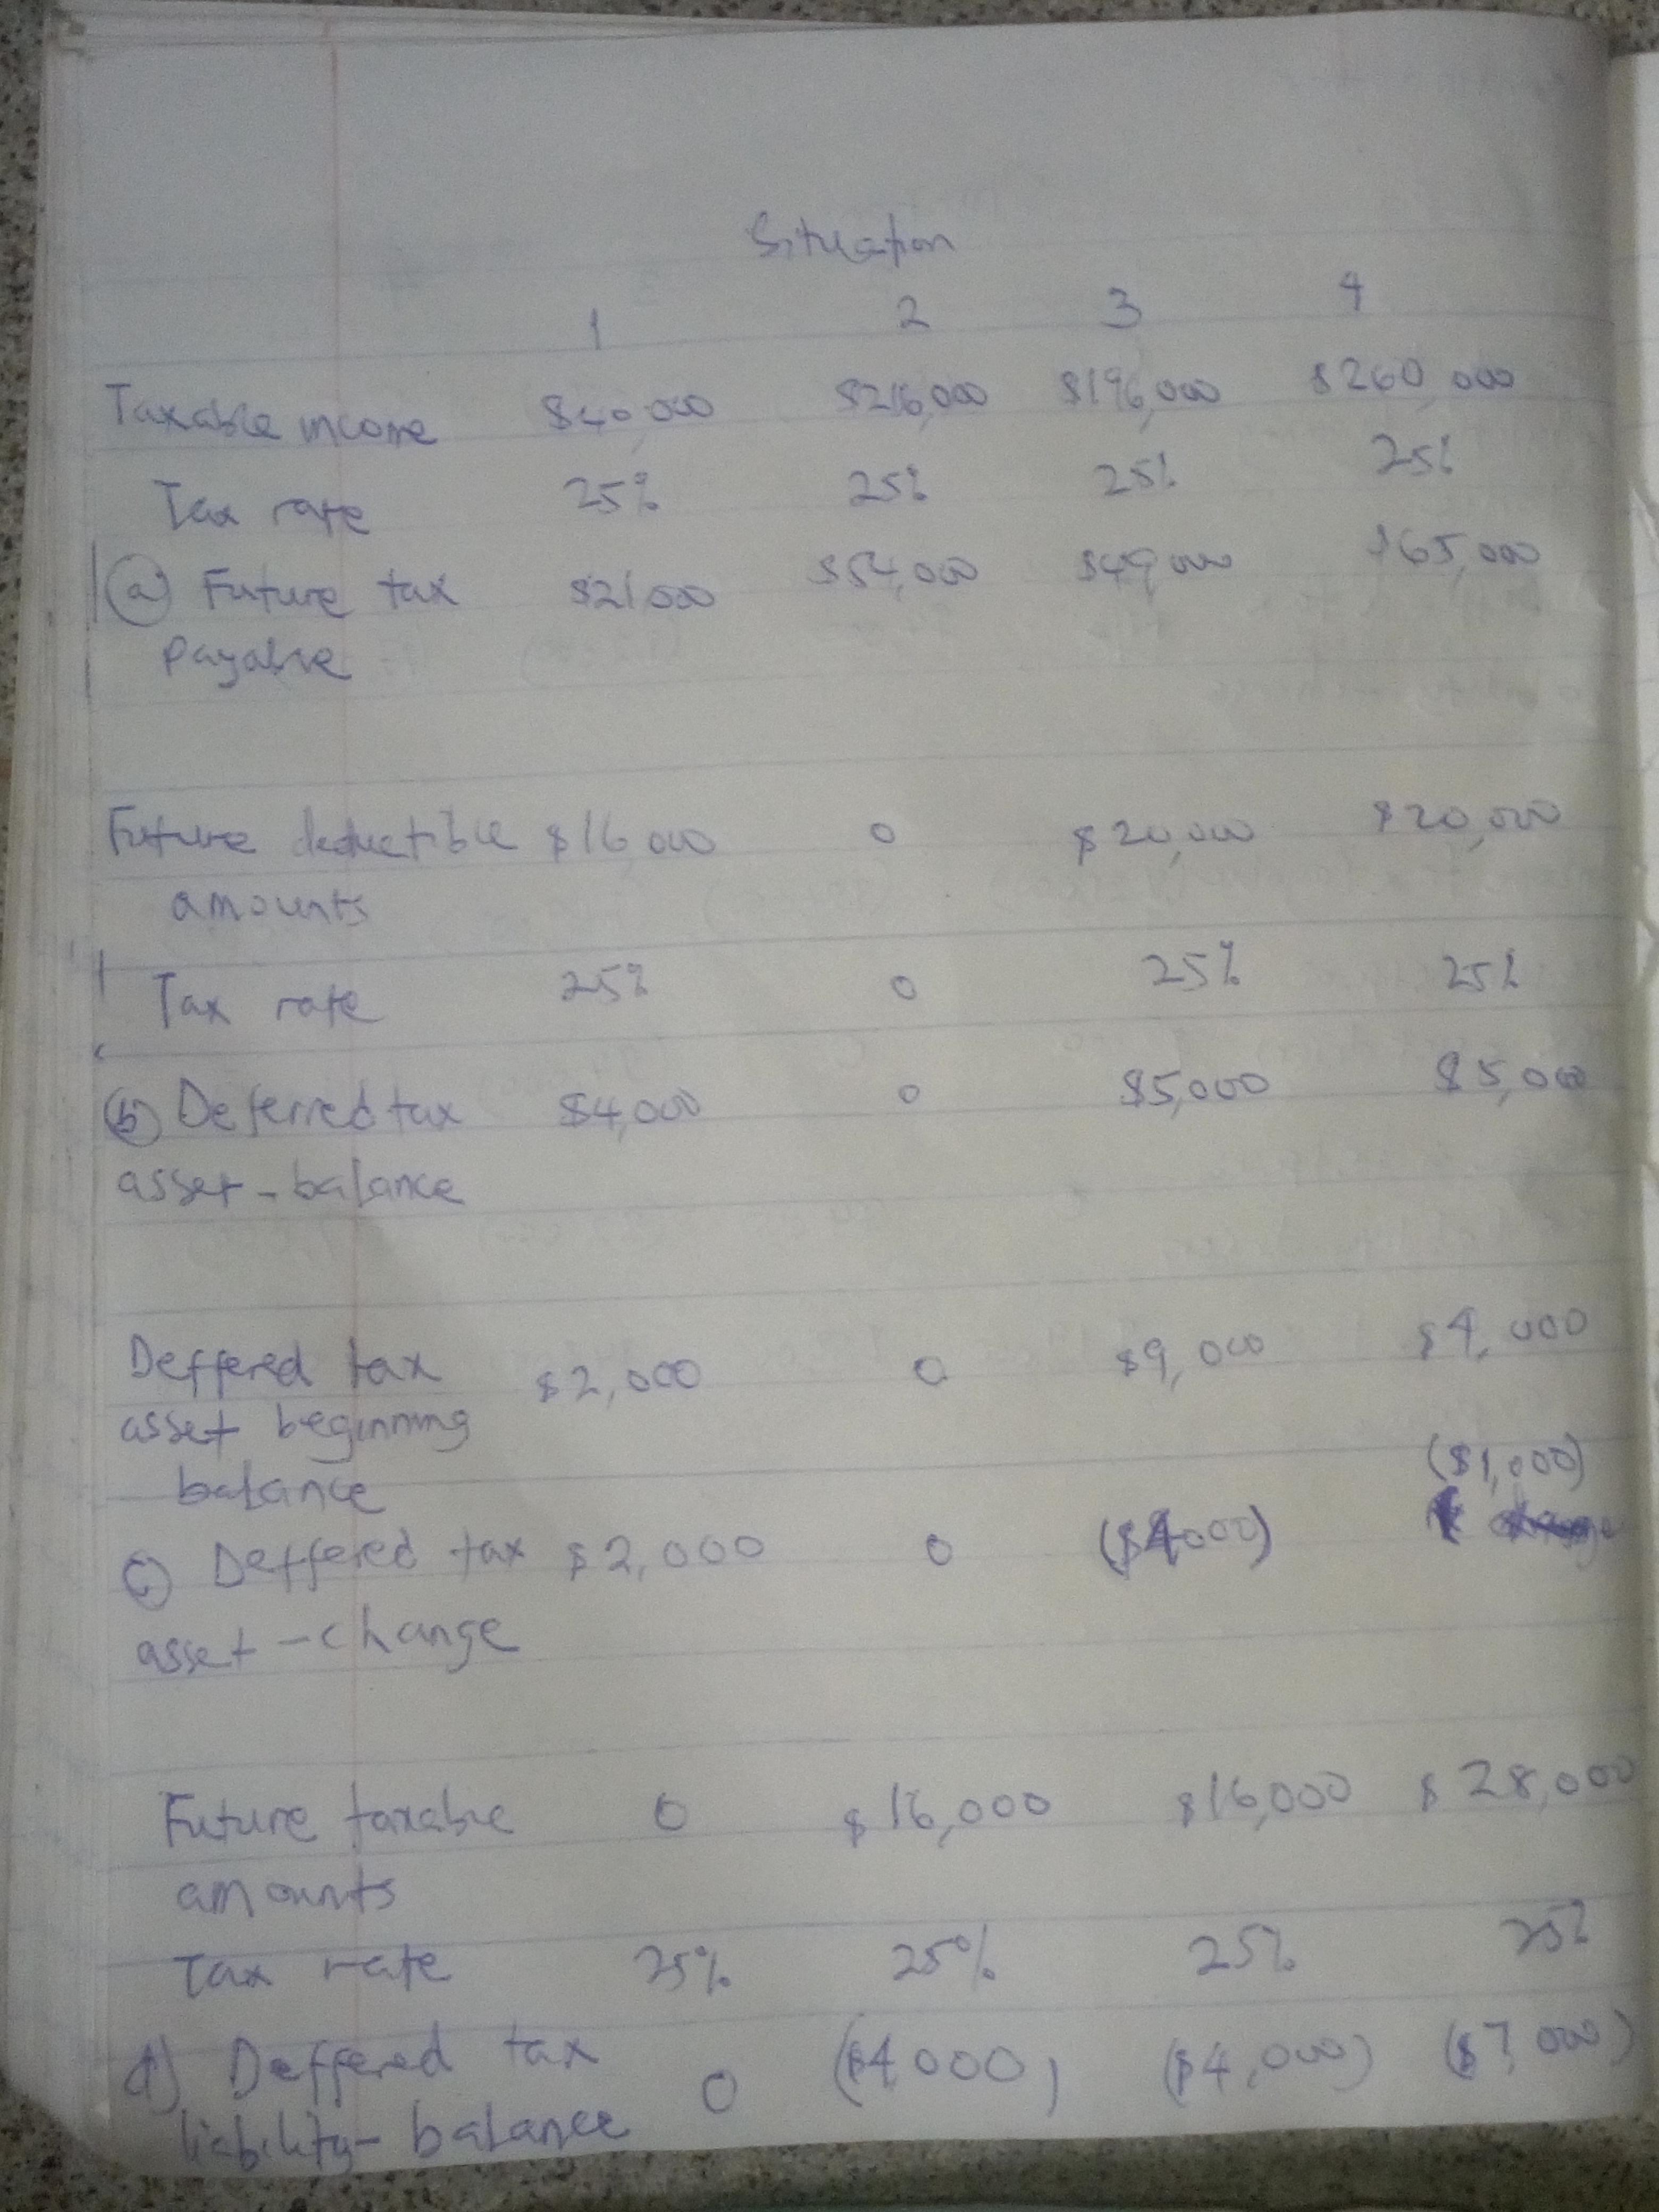 Situation
1 2 3 4
Taxable income $40,000 $216,000 $196,000 $260,000
Tax rate 25% 25% 25% 25%
(a) Future tax $21000 $54,000 $49000 $65,000
payable
Future deductible $16,000 0 $20,000 $20,000
amounts
Tax rate 25% 0 25% 25%
(b) Deferred tax $4,000 0 $5,000 $5,000
asset-balance
Deffered tax $2,000 0 $9,000 $4,000
asset beginning
balance ($1,000)
c) Deffered tax $2,000 0 ($4000)
asset-change
Future taxable 0 $16,000 $16,000 $28,000
amounts
Tax rate 25% 25% 25% 25%
d) Deffered tax 0 ($4000) ($4,000) ($7,000)
liability-balance